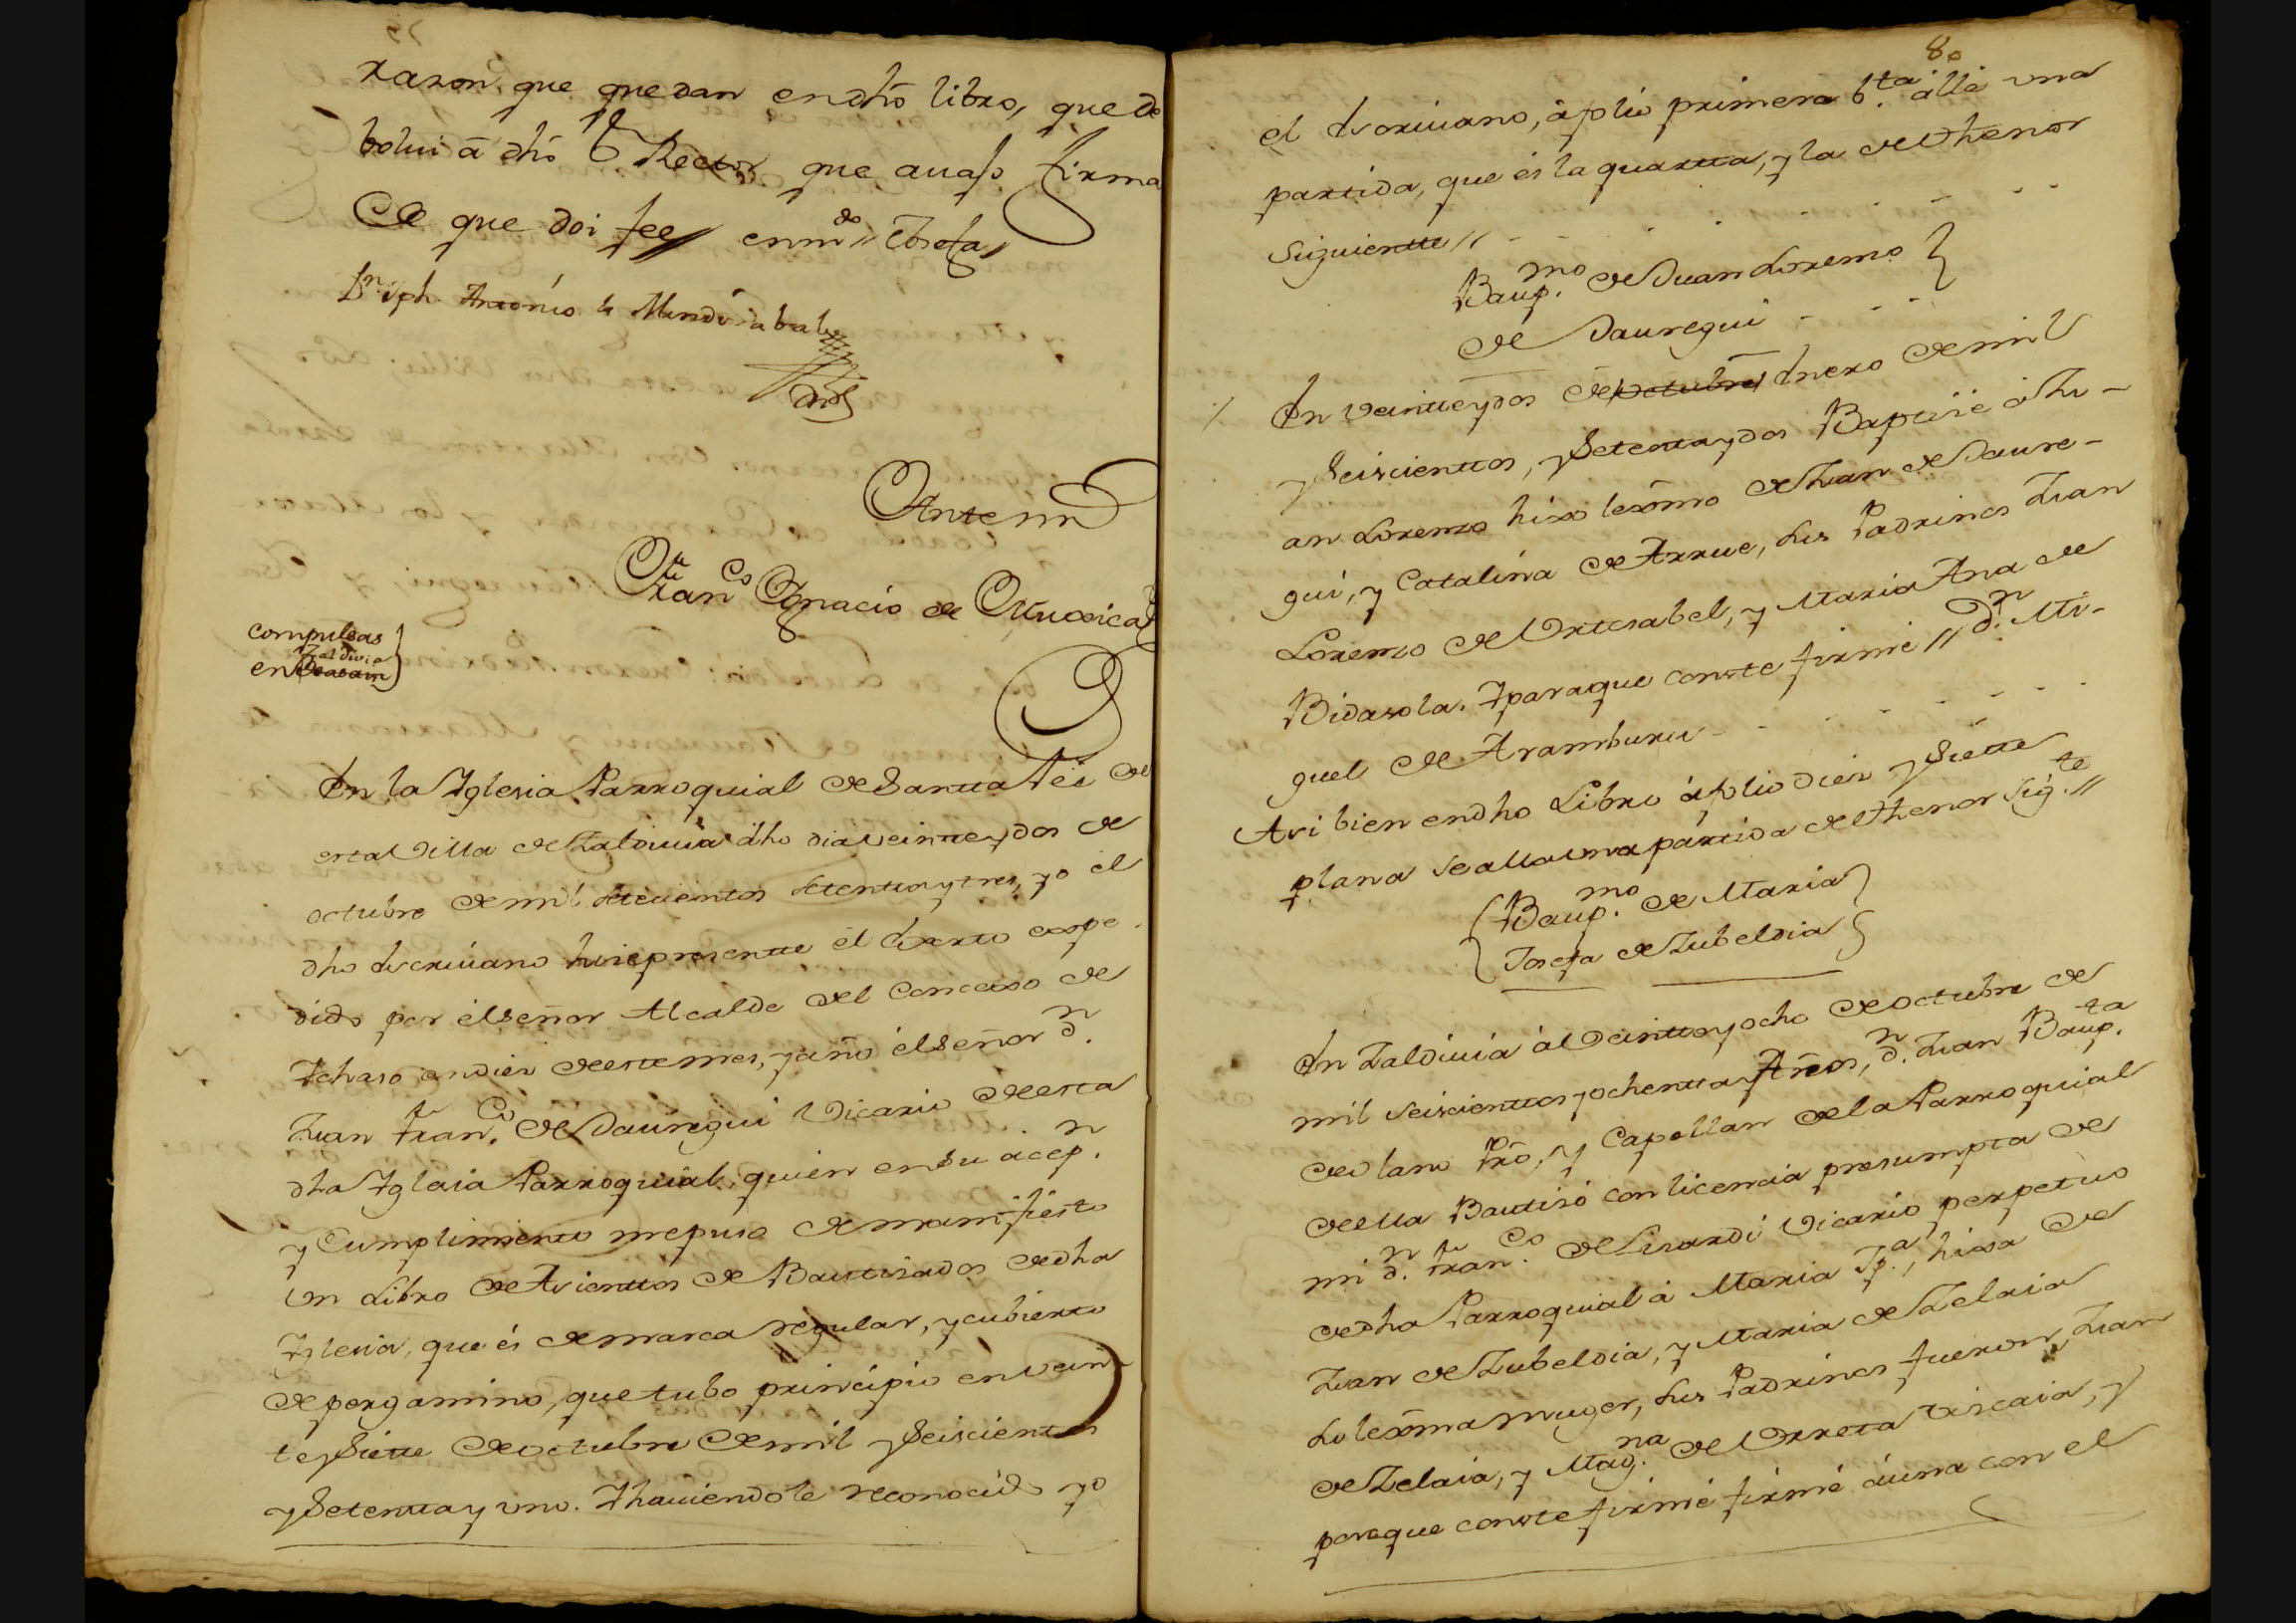 razon que quedan en dho̅ libro, que de
bolui a̅ dho̅ Sr. Rector que auajo firma
De que doi fee// enmdo// Cbreta//
Dn. Jph Antonio de Mendizabal
Antemi
Franco Ygnacio de Muxica
compulsas
en Zaldivia
En la Yglesia Parroquial de Santta Feé de
esta Villa de Zaldiuia dho dia veintte y dos de
octubre de mil settecientos settentta y tres, yo el
dho escriuano hice presentte el Exorto expe
dido por el señor Alcalde del Concexo de
Ychaso en diez de este mes, y año el señor Dn.
Juan Franco. de Jauregui Vicario de esta
dha Yglesia Parroquial, quien en su acepn.
y Cumplimiento me puso de manifiesto
Un Libro de Asienttos de Bauttizados de dha
Yglesia, que és de marca regular, y cubierto
de pergamino, que tubo principio en vein
te y Siette de octubre de mil y Seiscientos
y Setentta y uno. Y hauiendole reconocido yo
80
el escriuano, á folio primero bta. allé una
partida, que és la quartta, y la del thenor
Siguientte//
Baupmo. de Juan Lorenso
de Jauregui
En veintte y dos de octubre Enero de mil
y Seiscienttos, y Setentta y dos Baptisé á Ju-
an Lorenzo hixo lexmo̅ de Juan de Jaure-
gui, y Catalina de Arrue, sus Padrinos Juan
Lorenzo de Urtesabel, y Maria Ana de
Bidasola. Y para que conste firmé// Dn. Mi-
guel de Aramburu
Asi bien en dho Libro á folio diez y Siette
plana se alla una partida del thenor sigte.//
Baupmo. de Maria
Josefa de Zubeldia
En Zaldiuia á veintte y ocho de octubre de
mil seiscienttos y ochentta y tres, Dn. Juan Baupta.
de olano Pro̅, y Capellan de la Parroquial
de ella Bautisó con licencia presumpta de
mi Dn. Franco. de Lisardi Vicario perpetuo
de dha Parroquial á Maria Jpa., hixa de
Juan de Zubeldia, y Maria de Zelaia
su lexma̅ muger, sus Padrinos fueron, Juan
de Zelaia, y Magna. de Urreta viscaia, y
para que conste firmé firmé áuna con el